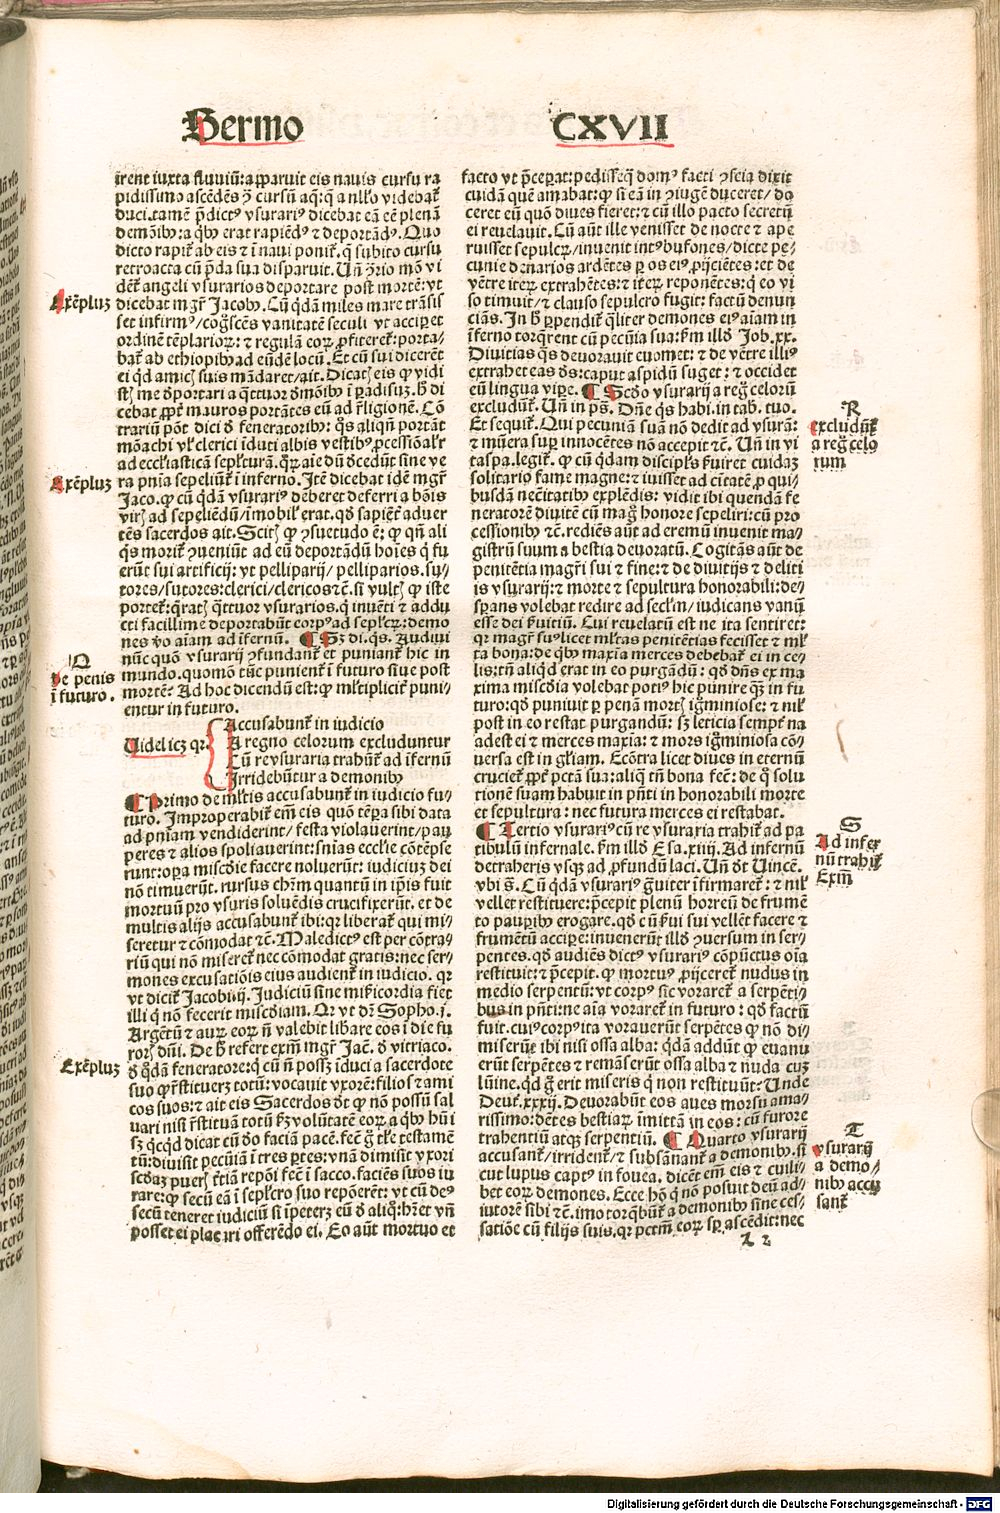 Sermo CXVII
irent iuxta fluviũ: apparuit eis navis cursu ra
pidissimo ascẽdẽs ꝯ̃ cursũ aq̃: q̃ a nłło videbat̃
duci. tamẽ p̃dictꝰ vsurariꝰ dicebat eã eẽ plenã
demõibꝰ: a qibꝰ erat rapiẽdꝰ ⁊ deportãdꝰ. Quo
dicto rapit̃ ab eis ⁊ ĩ navi ponit̃. q̃ subito cursu
retroacta cũ p̃da sua disparuit. Uñ ꝯ̃rio mõ vi
dẽt̃ angeli vsurarios deportare post mortẽ: vt
Exẽpluꝫ
dicebat mgr̃ Jacobꝰ. Cũ q̃dã miles mare trãsis
set infirmꝰ/ cog̃scẽs vanitatẽ seculi vt acciperet
ordinẽ tẽplarioꝝ: ⁊ regulã eoꝝ ꝓfiteret̃: porta-
bat̃ ab ethiopibꝰ ad eũdẽ locũ. Et cũ sui dicerẽt
ei qd amicis suis mãdaret/ ait. Dicatis eis ꝙ vidi
stis me deportari a q̃ttuor dẽmõibꝰ ĩ paradisuꝫ. h̃ di
cebat ꝓpt̃ mauros portãtes eũ ad r̃ligionẽ. Cõ
trariũ põt dici d̃ feneratoribꝰ: q̃s aliqñ portãt
mõachi vł clerici iduti albis vestibꝰ ꝓcessiõalr̃
ad eccłiasticã sepłturã. q̃rũ aie dũ d̃cedũt sine ve
Exẽpluꝫ
ra pñia sepeliũt̃ ĩ inferno. Itẽ dicebat idẽ mgr̃
Jaco. ꝙ cũ q̃dã vsurariꝰ deberet deferri a bõis
viris ad sepeliẽdũ/ imobił erat. qd̃ sapiẽt̃ adver
tẽs sacerdos ait. Scitis ꝙ ꝯsuetudo ẽ: ꝙ qñ ali
q̃s morit̃ ꝯveniũt ad eũ deportãdũ hoĩes q̃ fu
erũt sui artificij: vt pelliparij/ pelliparios. su-
tores/ sutores: clerici/ clericos ⁊c̃. si vultis ꝙ iste
portet̃: q̃ratis q̃ttuor vsurarios. q̃ invẽti ⁊ addu
cti facillime deportabũt corpꝰ ad sepłcꝝ: demo
nes v̾o aĩam ad ĩfernũ. ¶ Sꝫ di. q̃s. Audivi
Q
De penis
ĩ futuro.
nũc quõ vsurarij ꝯfundant̃ et puniant̃ hic in
mundo. quomõ tũc punient̃ ĩ futuro siue post
mortẽ? Ad hoc dicendũ est: ꝙ młtiplicit̃ puni-
entur in futuro.
Videlicꝫ qꝛ.
Accusabunt̃ in iudicio
A regno celorum excluduntur
Cũ re vsuraria trahũt̃ ad ĩfernũ
Irridebũtur a demonibꝰ
¶ Primo de młtis accusabunt̃ in iudicio fu-
turo. Improperabit̃ em̃ eis quõ tẽpa sibi data
ad pñiam vendiderint/ festa violauerint/ pau
peres ⁊ alios spoliauerint: sñias eccłie cõtẽpse
runt: opa miscd̃ie facere noluerũt: iudiciuꝫ dei
nõ timuerũt. rursus chr̃m quantũ in ip̃is fuit
mortuũ pro vsuris soluẽdis crucifixerũt. et de
multis alijs accusabunt̃ ibi: qꝛ liberat̃ qui mi-
seretur ⁊ cõmodat ⁊c̃. Maledictꝰ est per cõtra-
riũ qui nõ miseret̃ nec cõmodat gratis: nec ser-
mones excusatiõis eius audient̃ in iudicio. qꝛ
vt dicit̃ Jacobi.ij. Judiciũ sine mĩsericordia fiet
illi q̃ nõ fecerit miscd̃iam. Qꝛ vt dr̃ Sopho.j.
Argẽtũ ⁊ auꝝ eoꝝ ñ valebit liƀare eos ĩ die fu
roris dñi. De h̃ refert exm̃ mgr̃ Jac̃. d̃ vitriaco.
Exẽpluꝫ
d̃ q̃dã feneratore: q̃ cũ ñ possꝫ ĩduci a sacerdote
suo ꝙ r̃stitueꝝ totũ: vocauit vxorẽ: filios ⁊ ami
cos suos: ⁊ ait eis Sacerdos dt̃ ꝙ nõ possũ sal
uari nisi r̃stituã totũ: ꝯtꝫ volũtatẽ eoꝝ a qibꝰ hũi
sꝫ q̃cq̃d dicat cũ d̃o faciã pacẽ. fec̃ g̃ tłe testamẽ
tũ: diuisit pecũiã ĩ tres ptes: vnã dimisit vxori
scd̃aꝫ pueris t̃tiã repõi fec̃ ĩ sacco. faciẽs suos iu
rare: ꝙ secũ eã ĩ sepłcro suo repõerẽt: vt cũ deꝰ
secũ teneret iudiciũ si ĩpeterꝫ eũ d̃ aliq̃: hr̃et vñ
posset ei placari offerẽdo ei. Eo aũt mortuo et
facto vt p̃cepat: pedisseq̃ domꝰ facti ꝯscia dixit
cuidã quẽ amabat: ꝙ si eã in ꝯiugẽ duceret/ do
ceret eũ quõ diues fieret: ⁊ cũ illo pacto secretũ
ei reuelauit. Cũ aũt ille venisset de nocte ⁊ ape
ruisset sepulcꝝ/ inuenit intꝰ bufones/ dicte pe-
cunie denarios ardẽtes p os eiꝰ ꝓijciẽtes: et de
vẽtre iteꝝ extrahẽtes: ⁊ iteꝝ reponẽtes: q̃ eo vi
so timuit/ ⁊ clauso sepulcro fugit: factũ denun
ciãs. In h̃ ꝑpendit̃ q̃liter demones eiꝰ aĩam in
ĩferno torq̃rent cũ pecũia sua: ẜm illd̃ Job. xx.
Diuitias q̃s deuorauit euomet: ⁊ de vẽtre illiꝰ
extrahet eas d̃s: caput aspidũ suget: ⁊ occidet
eũ lingua vipe. ¶ Scd̃o vsurarij a reg̃ celorũ
R
excludũt̃
a reg̃ celo
rum
excludũt̃. Uñ in ps̃. Dñe q̃s habi. in tab. tuo.
Et sequit̃. Qui pecuniã suam nõ dedit ad vsurã:
⁊ mũera supꝝ innocẽtes nõ accepit ⁊c̃. Uñ in vi
taspa. legit̃. ꝙ cũ q̃dam disciplꝰ ẜuiret cuidaꝫ
solitario fame magne: ⁊ iuisset ad ciũtatẽ ꝓ qui-
busdã nec̃itatibꝰ explẽdis: vidit ibi quendã fe
neratorẽ diuitẽ cũ mag̃ honore sepeliri: cũ pro
cessionibꝰ ⁊c̃. rediẽs aũt ad eremũ inuenit ma-
gistrũ suum a bestia deuoratũ. Cogitãs aũt de
penitẽtia magr̃i sui ⁊ fine: ⁊ de diuitijs ⁊ deliti
is vsurarij: ⁊ morte ⁊ sepultura honorabili: de-
spans volebat redire ad secłm/ iudicans vanũ
esse dei ẜuitiũ. Cui reuelatũ est ne ita sentiret:
qꝛ magr̃ suꝰ licet młtas penitẽtias fecisset ⁊ mł
ta bona: de qibꝰ maxĩa merces debebat̃ ei in ce-
lis: tñ aliq̃d erat in eo purgãdũ: qd̃ dñs ex ma
xima miscd̃ia volebat potiꝰ hic punire q̃ꝫ in fu
turo: qd̃ puniuit p penã mortis igñiniose: ⁊ nił
post in eo restat purgandũ: sꝫ leticia sempit̃na
adest ei ⁊ merces maxĩa: ⁊ mors igñiniosa cõ-
uersa est in głiam. Ecõtra licet diues in eternũ
cruciet̃ ꝓpt̃ pctã sua: aliq̃ tñ bona fec̃: de q̃ solu
tionẽ suam habuit in pñti in honorabili morte
et sepultura: nec futura merces ei restabat.
¶ Tertio vsurariꝰ cũ re vsuraria trahit̃ ad pa
S
Ad infer
nũ trahit̃
Exm̃
tibulũ infernale. ẜm illd̃ Esa. xiiij. Ad infernũ
detraheris vsꝙ ad ꝓfundũ laci. Uñ dt̃ Uincẽ.
vbi s̃. Cũ q̃dã vsurariꝰ g̃uiter ĩfirmaret̃: ⁊ nił
vellet restituere: p̃cepit plenũ horreũ de frumẽ
to paupibꝰ erogare. qd̃ cũ ẜui sui vellẽt facere ⁊
frumẽtũ accipe: inuenerũt illd̃ ꝯuersum in ser-
pentes. qd̃ audiẽs dictꝰ vsurariꝰ cõpũctus oĩa
restituit: ⁊ p̃cepit. ꝙ mortuꝰ ꝓijceret̃ nudus in
medio serpentũ: vt corpꝰ sic voraret̃ a serpẽti-
bus in pñti: ne aĩa voraret̃ in futuro: qd̃ factũ
fuit. cuiꝰ corpꝰ ita vorauerũt serpẽtes ꝙ nõ di-
miserũt ibi nisi ossa alba: q̃dã addũt ꝙ euanu
erũt serpẽtes ⁊ remãserũt ossa alba ⁊ nuda cuꝫ
lũine. qd g̃ erit miseris q̃ nõ restituũt? Unde
Deut̃. xxxij. Deuorabũt eos aues morsu ama-
rissimo: dẽtes bestiaꝝ ĩmittã in eos: cũ furore
trahentiũ atqꝫ serpentiũ. ¶ Quarto vsurarij
T
vsurarij
a demo/
nibꝰ accu
sant̃
accusant̃/ irrident̃/ ⁊ subsãnant̃ a demonibꝰ. si
cut lupus captꝰ in fouea. dicẽt em̃ eis ⁊ cuili-
bet eoꝝ demones. Ecce hõ q̃ nõ posuit deũ ad-
iutorẽ sibi ⁊c̃. imo torq̃bũt̃ a demonibꝰ sine ces-
satiõe cũ filijs suis. qꝛ pctm̃ eoꝝ sp ascẽdit: nec
Z 2
Digitalisierung gefördert durch die Deutsche Forschungsgemeinschaft - DFG